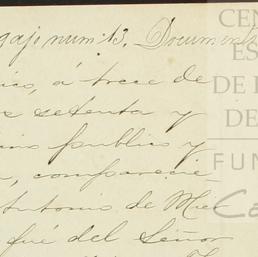 gajo num: 13. Documento
á trece de
setenta y
publico y
comparecie
Antonio de Mier
fué del Señor
CEN
ES
DE
DE
FUN
Ca